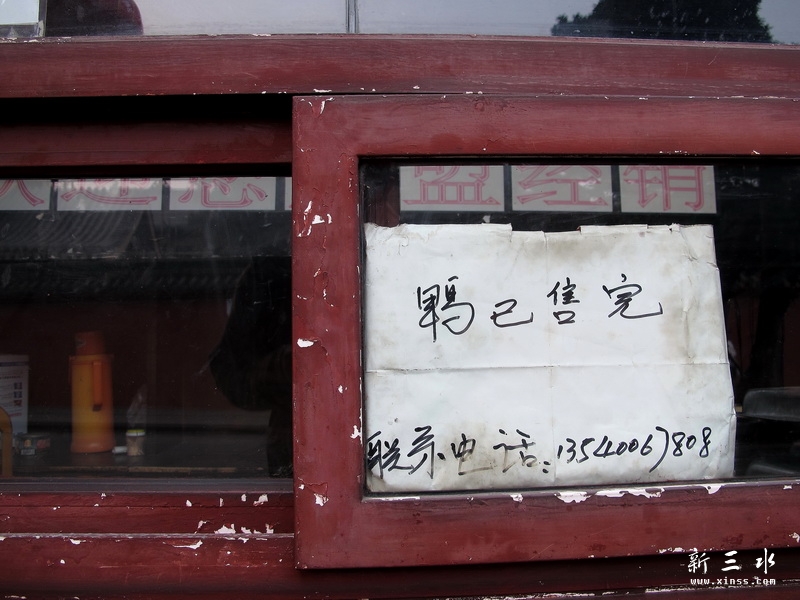 欢迎您 加盟经销
鸭已售完
联系电话:13540067808
新三水
www.xinss.com